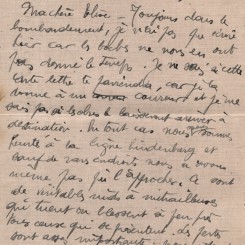 Ma chère Alice — Toujours dans le
bombardement, je n'ai pas pu écrire
hier car les boches ne nous en ont
pas donné le temps. Je ne sais si cette
lettre te parviendra, car je la
donne à un coureur et je ne
sais pas si les obus le laisseront arriver à
destination. En tout cas nous sommes
à la ligne Hindenburg et
sauf de vrais endroits nous n'avons
même pas pu l'approcher. Ce sont
de véritables nids à mitrailleuses
qui tuent ou blessent à peu près
tous ceux qui se présentent. Les pertes
sont assez importantes